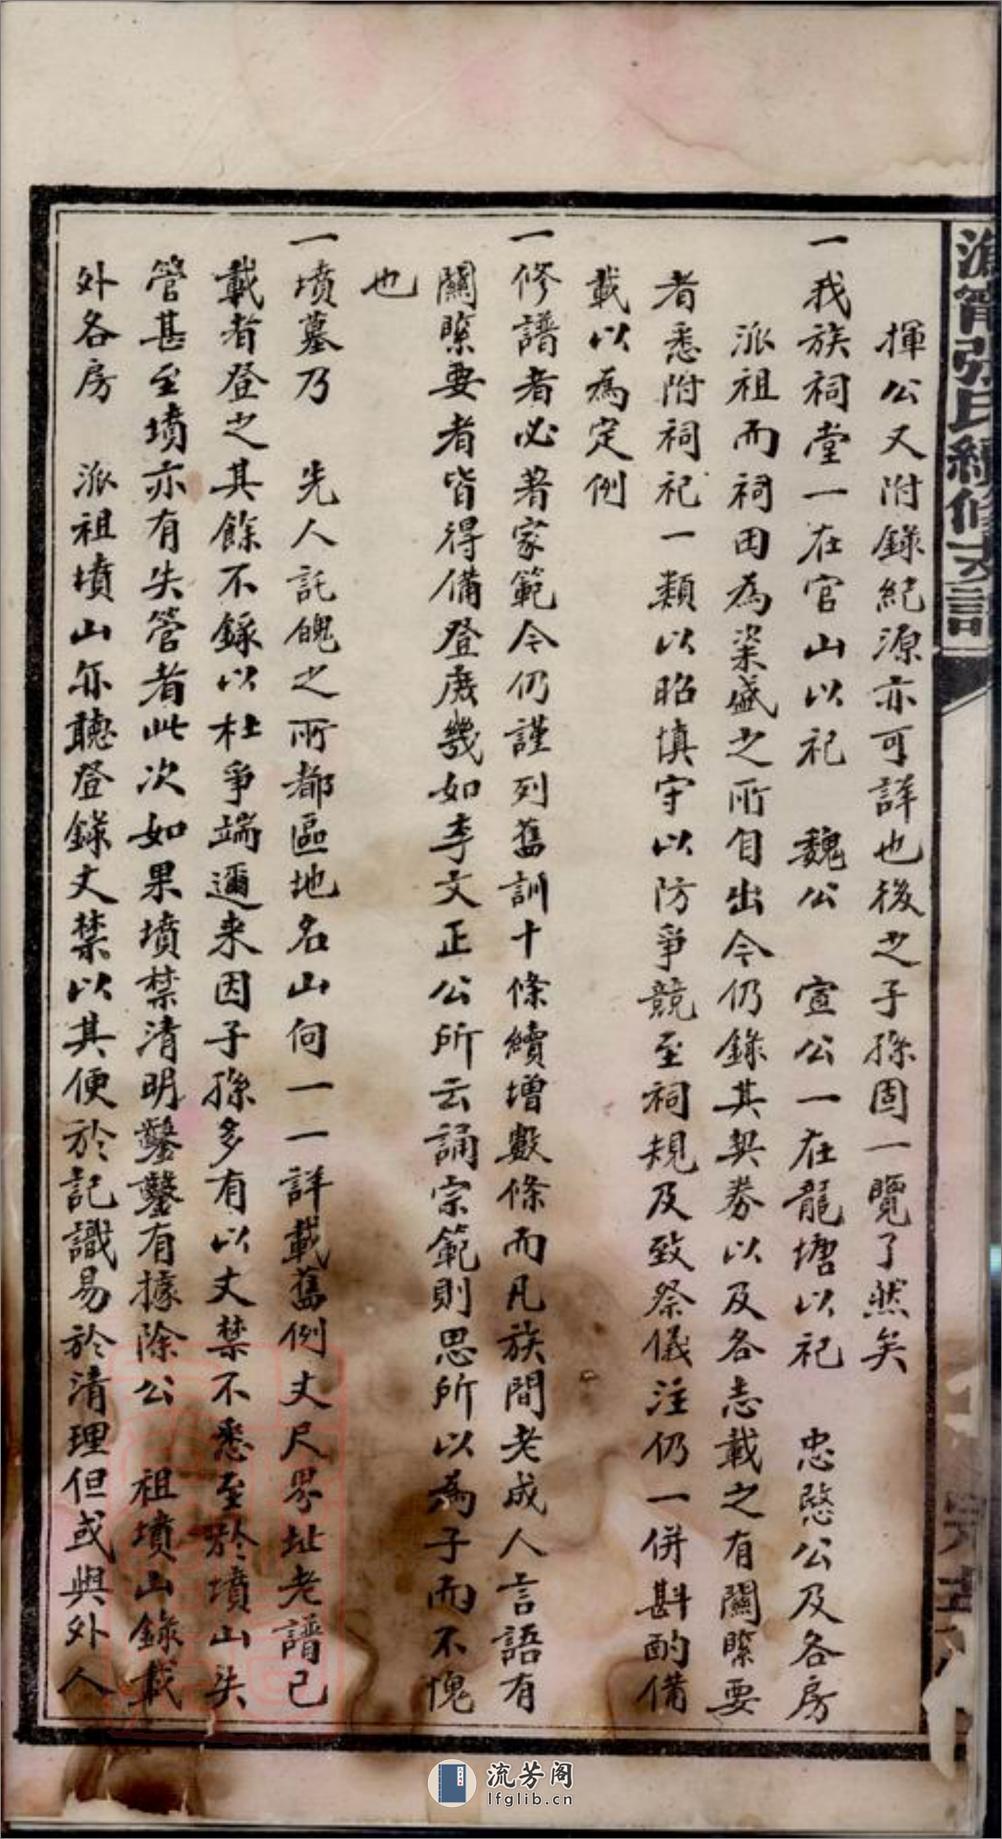 溈甯張氏續修支譜
揮公又附錄紀源亦可詳也後之子孫固一覽了然矣
一我族祠堂一在官山以祀 魏公 宣公一在龍塘以祀 忠愍公及各房
派祖而祠田為粢盛之所自出今仍錄其契券以及各志載之有關緊要
者悉附祠祀一類以昭慎守以防爭競至祠規及致祭儀注仍一併斟酌備
載以為定例
一修譜者必著家範今仍謹列舊訓十條續增數條而凡族間老成人言語有
關緊要者皆得備登庶幾如李文正公所云誦宗範則思所以為子而不愧
也
一墳墓乃 先人託魄之所都區地名山向一一詳載舊例丈尺界址老譜已
載者登之其餘不錄以杜爭端邇来因子孫多有以丈禁不悉至於墳山失
管甚至墳亦有失管者此次如果墳禁清明鑿鑿有據除公 祖墳山錄載
外各房 派祖墳山亦聽登錄丈禁以其便於記識易於清理但或與外人
流芳阁
lfglib.cn